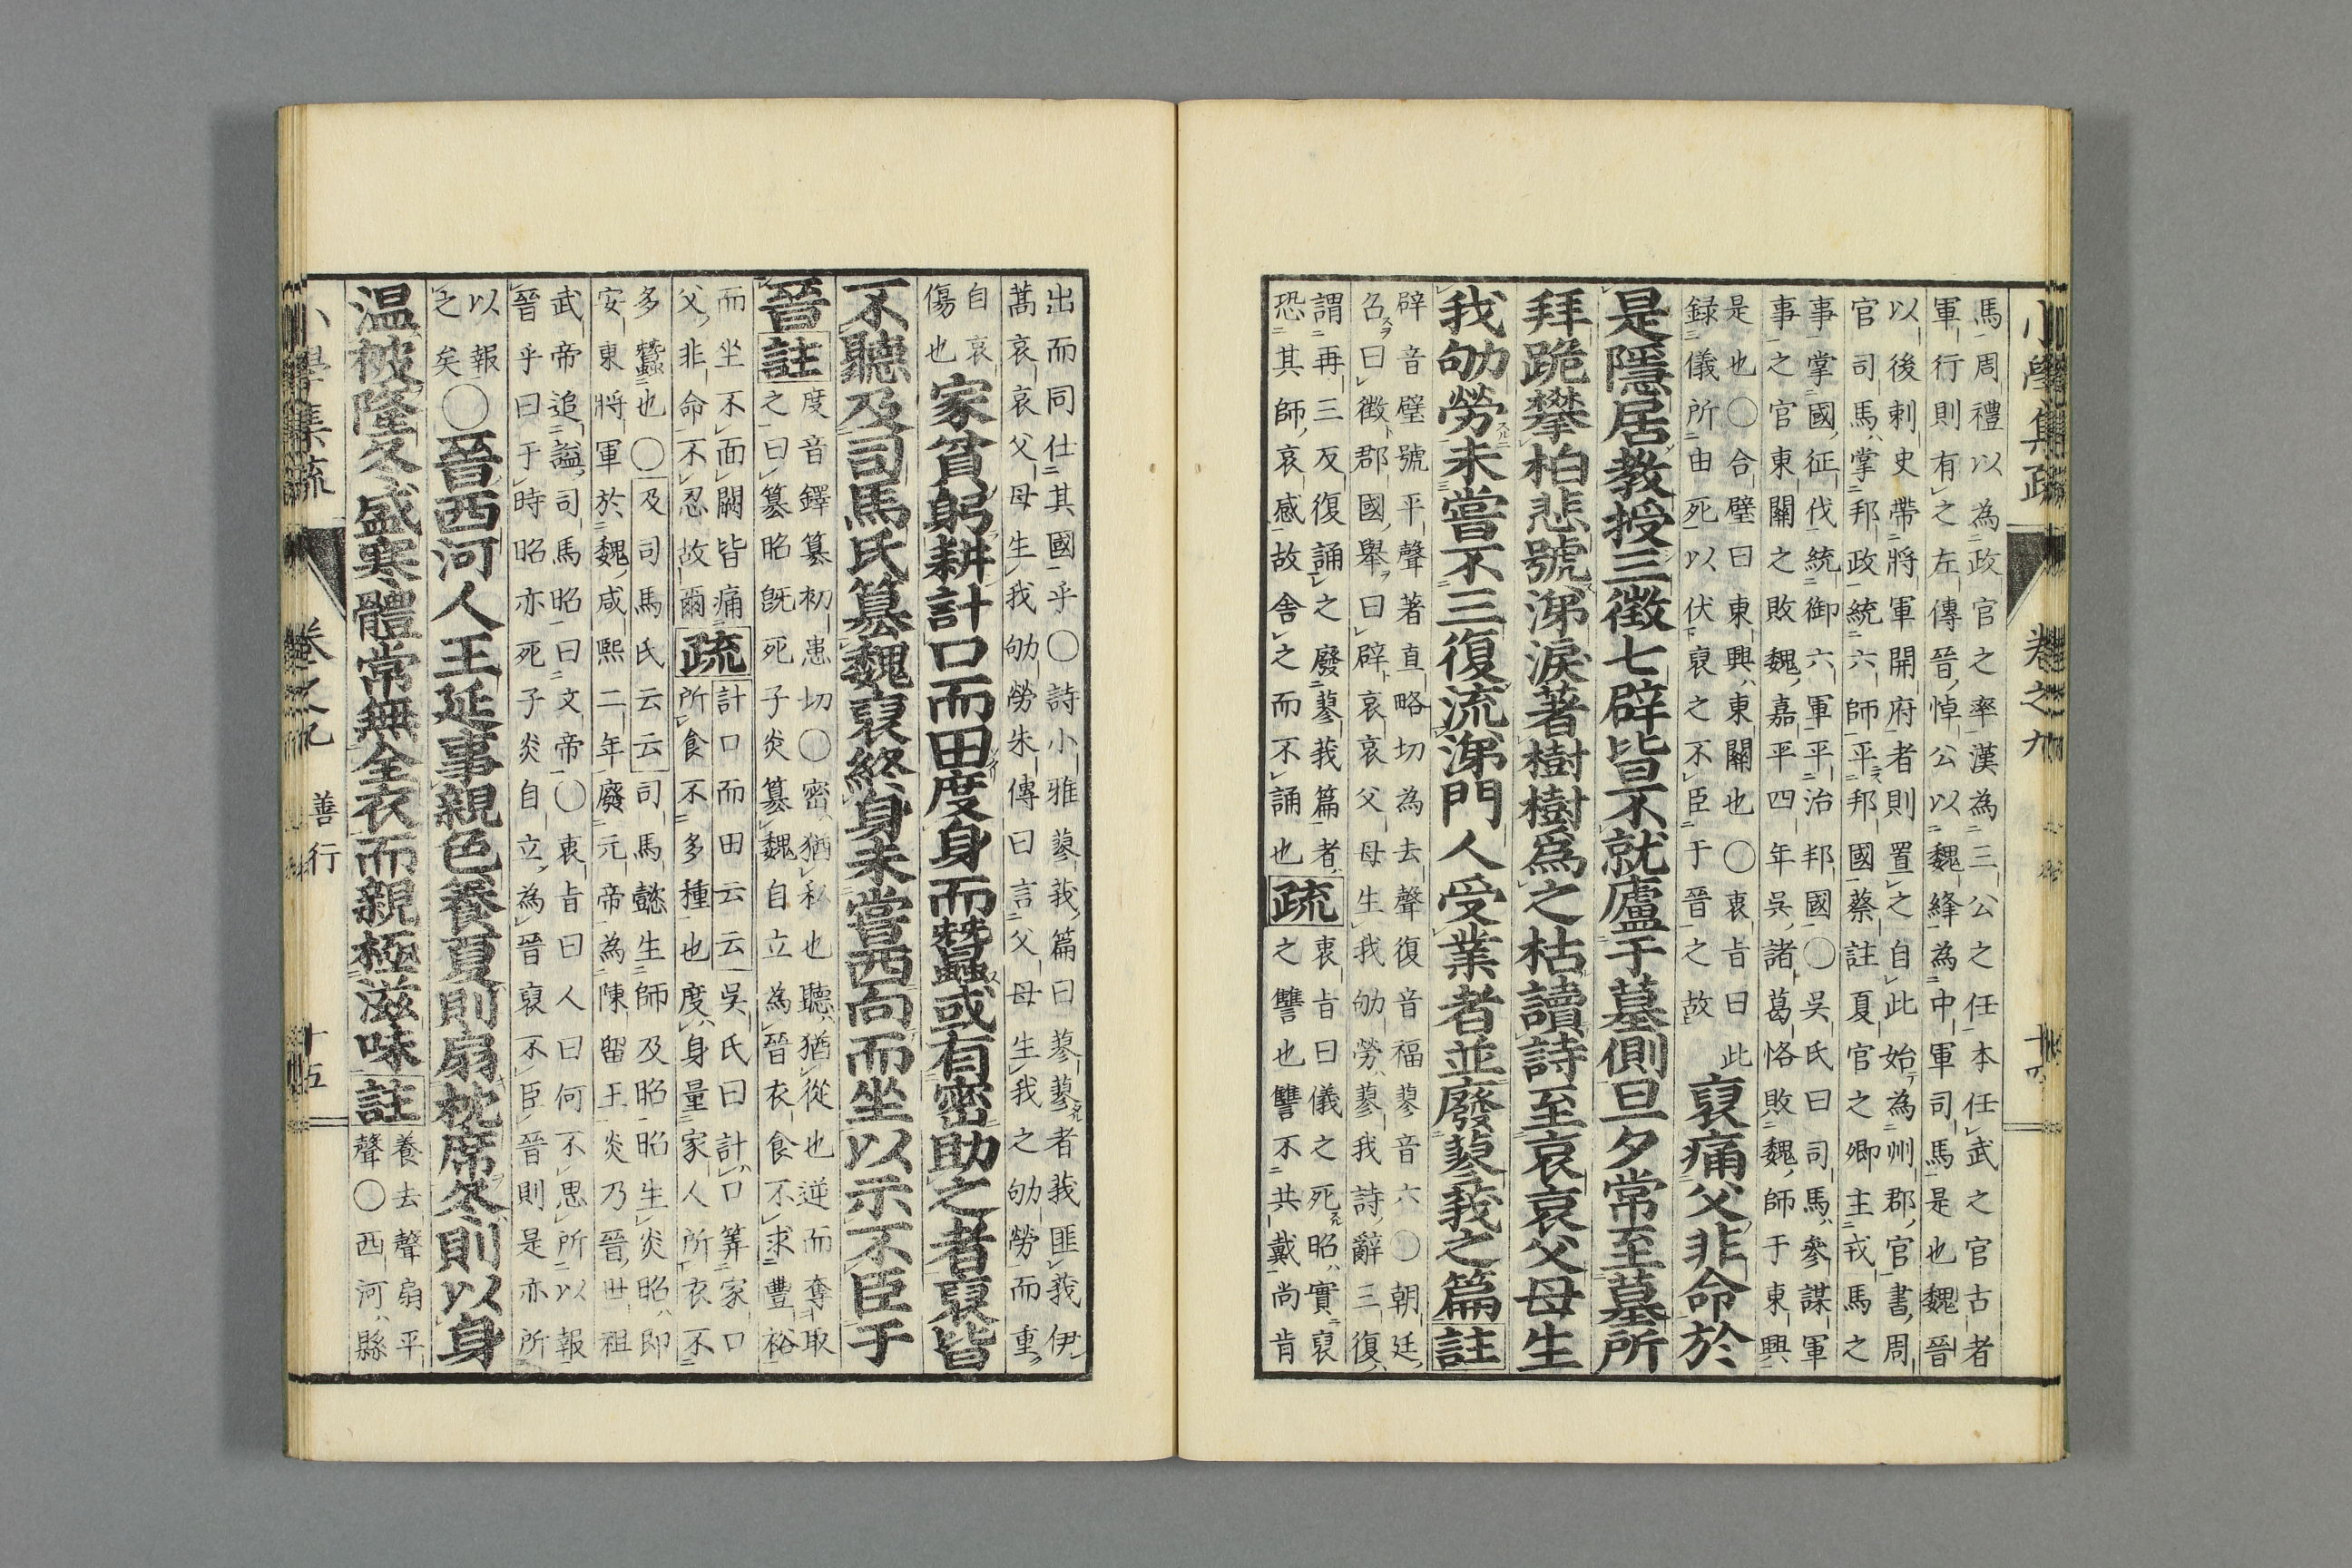 馬周禮以為政官之率漢為三公之任本任武之官古者
軍行則有之左傳晉悼公以魏絳為中軍司馬是也魏晉
以後刺史帶將軍開府者則置之自此始為州郡官書周
官司馬掌邦政統六師平邦國蔡註夏官之卿主戎馬之
事掌國征伐統御六軍平治邦國○吳氏曰司馬參謀軍
事之官東關之敗魏嘉平四年吳諸葛恪敗魏師于東興
是也○合璧曰東興東關也○衷旨曰此
録儀所由死以伏裒之不臣于晉之故
裒痛父非命於
是隱居教授三徵七辟皆不就廬于墓側旦夕常至墓所
拜跪攀柏悲號涕淚著樹樹爲之枯讀詩至哀哀父母生
我劬勞未嘗不三復流涕門人受業者並廢蓼莪之篇註
辟音璧號平聲著直略切為去聲復音福蓼音六○朝廷
召曰徵郡國舉曰辟哀哀父母生我劬勞蓼我詩辭三復
謂再三反復誦之廢蓼莪篇者疏衷旨曰儀之死昭實裒
恐其師哀感故舎之而不誦也之讐也讐不共戴尚肯
小學集疏 卷之九
出而同仕其國乎○詩小雅蓼莪篇曰蓼蓼者莪匪莪伊
蒿哀哀父母生我劬勞朱傳曰言父母生我之劬勞而重
自哀
傷也
家貧躬耕計口而田度身而蠶或有密助之者裒皆
不聽及司馬氏簒魏裒終身未嘗西向而坐以示不臣于
晉註
度音鐸簒初患切○密猶私也聽猶從也逆而奪取
之曰簒昭旣死子炎簒魏自立為晉衣食不求豐裕
而坐不面闕皆痛
父非命不忍故爾
疏
計口而田云云吳氏曰計口筭家口
所食不多種也度身量家人所衣不
多蠶也○及司馬氏云云司馬懿生師及昭昭生炎昭即
安東將軍於魏咸熙二年廢元帝為陳留王炎乃晉世祖
武帝追謚司馬昭曰文帝○衷旨曰人曰何不思所以報
晉乎曰于時昭亦死子炎自立為晉裒不臣晉則是亦所
以報
之矣
○晉西河人王延事親色養夏則扇枕席冬則以身
温被隆冬盛寒體常無全衣而親極滋味註
養去聲扇平
聲○西河縣
小學集疏 卷之九 善行 十五